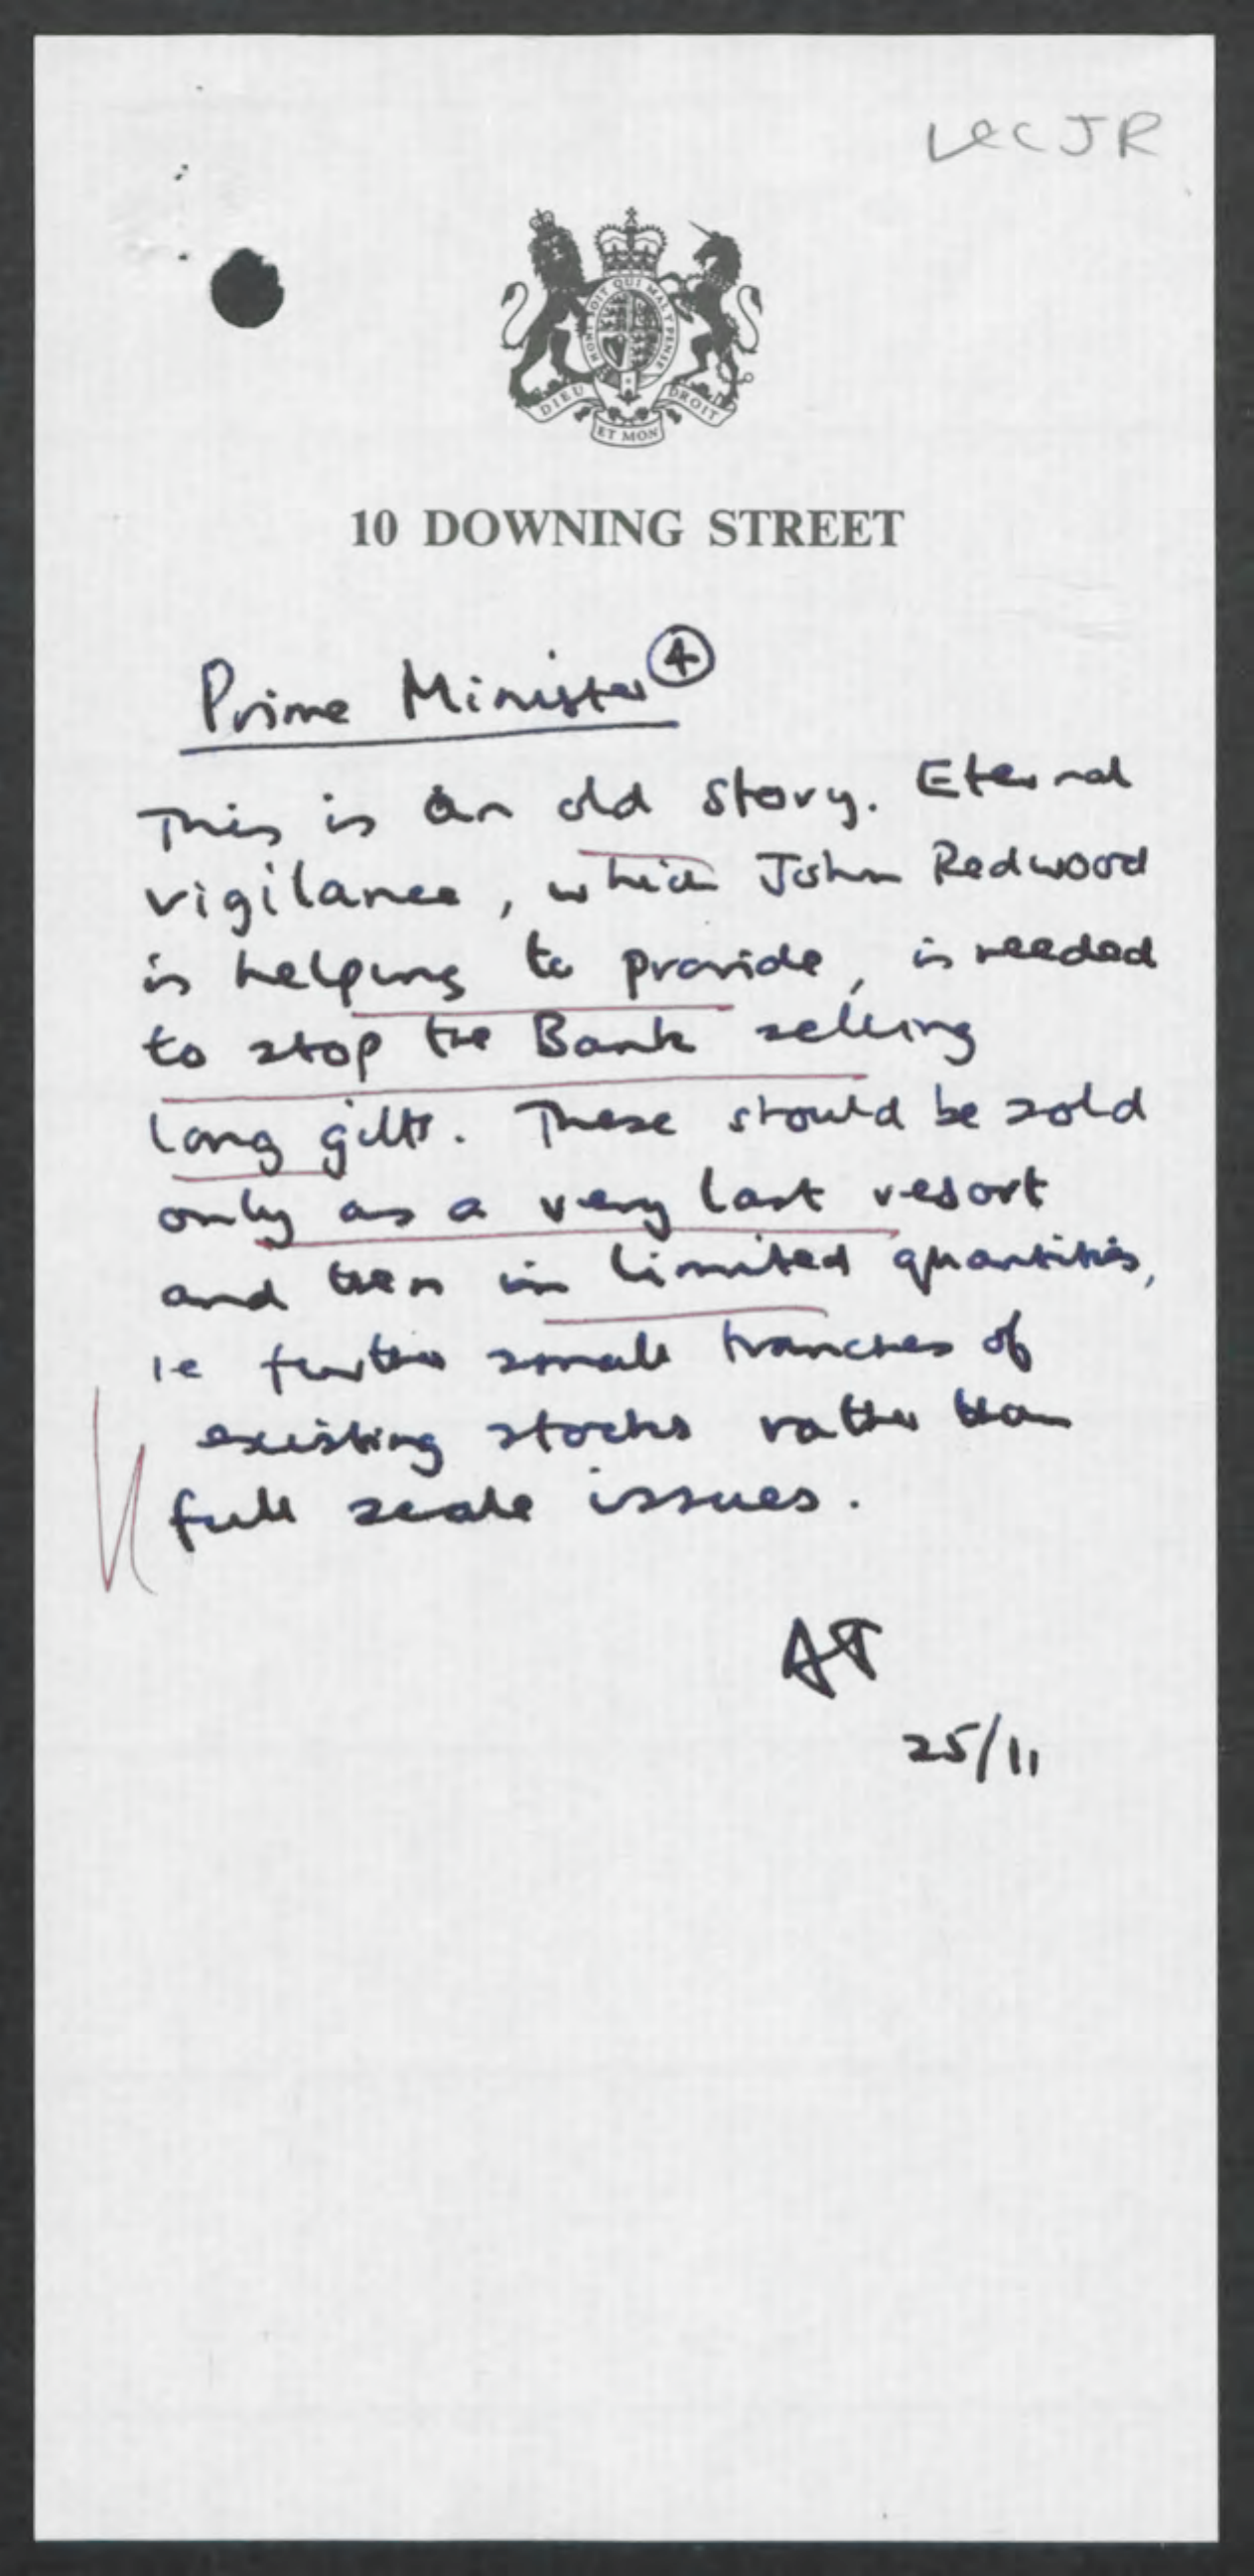 cc JR
HONI SOIT QUI MAL Y PENSE
DIEU ET MON DROIT
10 DOWNING STREET
Prime Minister 4
This is an old story. Eternal
vigilance, which John Redwood
is helping to provide, is needed
to stop the Bank selling
long gilts. These should be sold
only as a very last resort
and then in limited quantities,
ie further small tranches of
existing stocks rather than
full scale issues.
AT
25/11